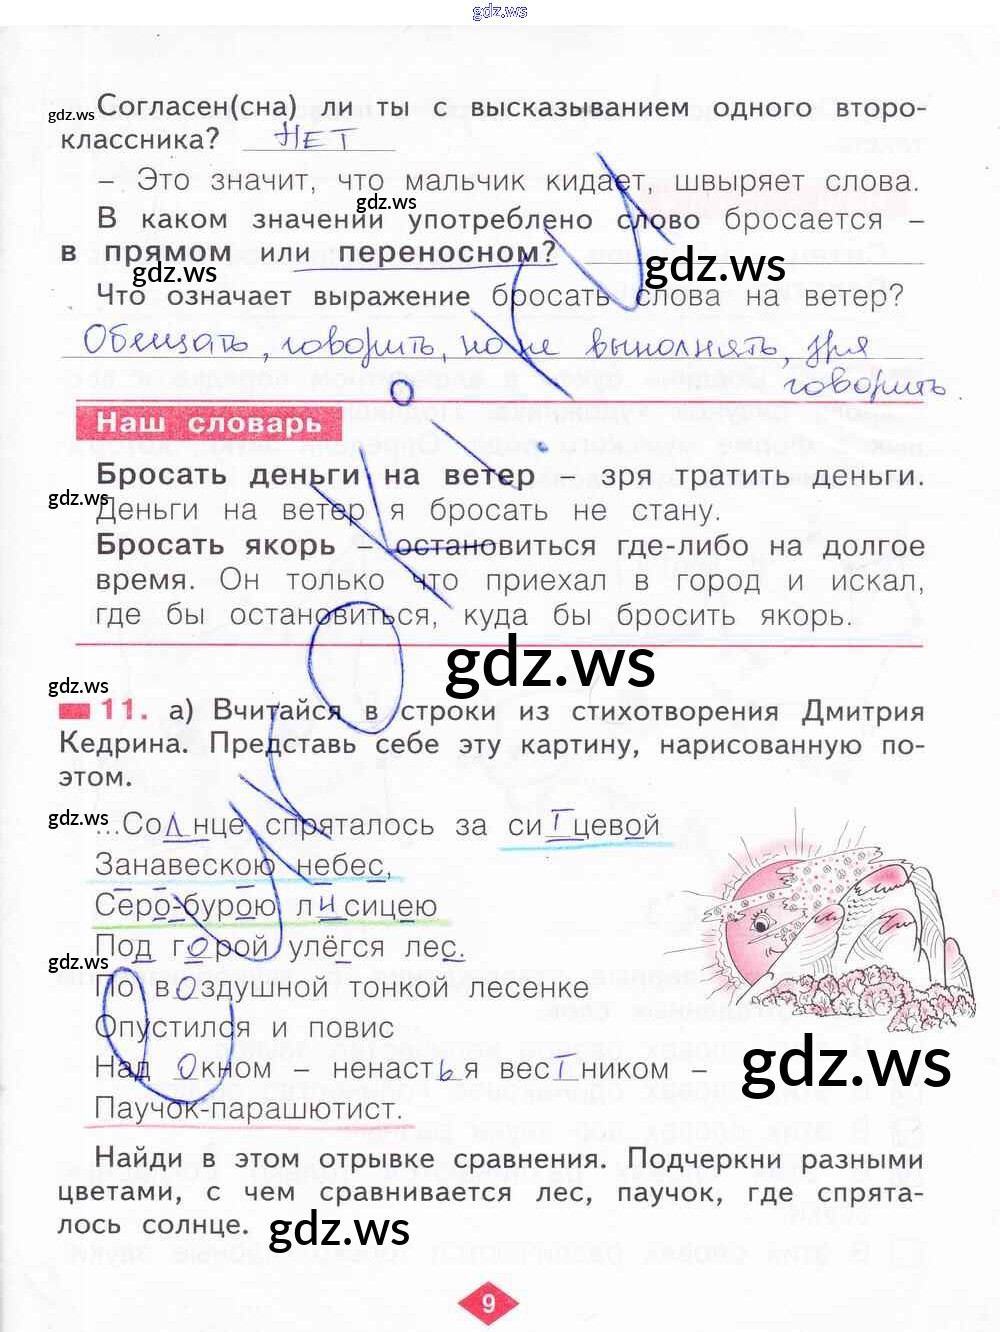 gdz.ws
Согласен(сна) ли ты с высказыванием одного второ-
gdz.ws
классника? НЕТ
– Это значит, что мальчик кидает, швыряет слова.
gdz.ws
В каком значении употреблено слово бросается –
в прямом или переносном?
gdz.ws
gdz.ws
Что означает выражение бросать слова на ветер?
Обещать, говорить, но не выполнять, зря
говорить.
Наш словарь
Бросать деньги на ветер – зря тратить деньги.
gdz.ws
Деньги на ветер я бросать не стану.
Бросать якорь – остановиться где-либо на долгое
время. Он только что приехал в город и искал,
где бы остановиться, куда бы бросить якорь.
gdz.ws
gdz.ws
11. а) Вчитайся в строки из стихотворения Дмитрия
Кедрина. Представь себе эту картину, нарисованную по-
этом.
gdz.ws
...Солнце спряталось за ситцевой
Занавескою небес,
Серо-бурою лисицею
Под горой улёгся лес.
gdz.ws
По воздушной тонкой лесенке
Опустился и повис
Над окном – ненастья вестником –
gdz.ws
Паучок-парашютист.
Найди в этом отрывке сравнения. Подчеркни разными
цветами, с чем сравнивается лес, паучок, где спрята-
лось солнце.
gdz.ws
9